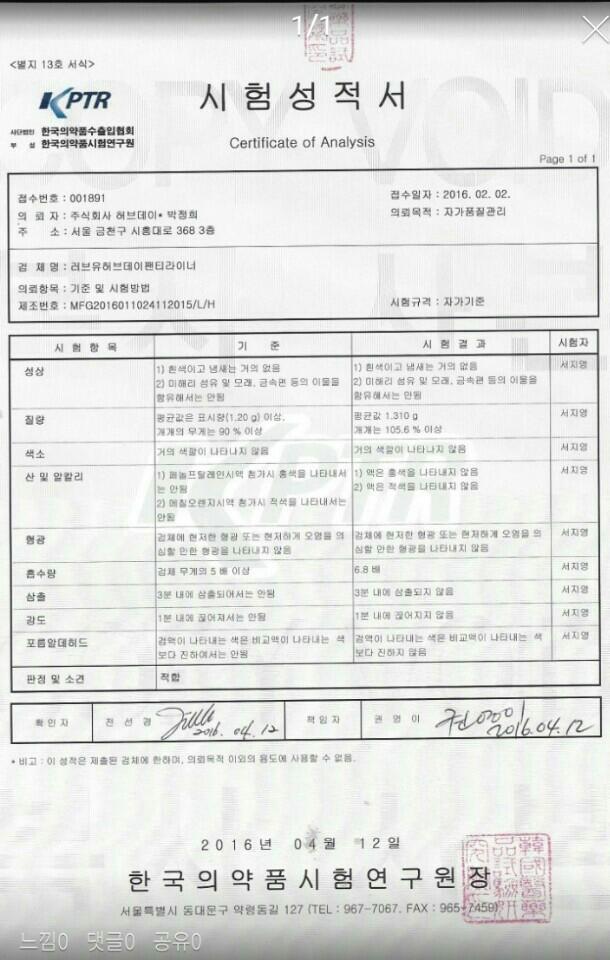 1/1
<별지 13호 서식>
KPTR
사단법인 한국의약품수출입협회
부 설 한국의약품시험연구원
시험성적서
Certificate of Analysis
Page 1 of 1
접수번호 : 001891
접수일자 : 2016. 02. 02.
의 뢰 자 : 주식회사 허브데이* 박정희
의뢰목적 : 자가품질관리
주 소 : 서울 금천구 시흥대로 368 3층
검 체 명 : 러브유허브데이팬티라이너
의뢰항목 : 기준 및 시험방법
제조번호 : MFG2016011024112015/L/H
시험규격 : 자가기준
시 험 항 목 기 준 시 험 결 과 시험자
성상
1) 흰색이고 냄새는 거의 없음
2) 미해리 섬유 및 모래, 금속편 등의 이물을
함유해서는 안됨
1) 흰색이고 냄새는 거의 없음
2) 미해리 섬유 및 모래, 금속편 등의 이물을
함유해서는 안됨
서지영
질량
평균값은 표시량(1.20 g) 이상,
개개의 무게는 90 % 이상
평균값 1.310 g
개개는 105.6 % 이상
서지영
색소
거의 색깔이 나타나지 않음
거의 색깔이 나타나지 않음
서지영
산 및 알칼리
1) 페놀프탈레인시액 첨가시 홍색을 나타내서
는 안됨
2) 메칠오렌지시액 첨가시 적색을 나타내서는
안됨
1) 액은 홍색을 나타내지 않음
2) 액은 적색을 나타내지 않음
서지영
형광
검체에 현저한 형광 또는 현저하게 오염을 의
심할 만한 형광을 나타내지 않음
검체에 현저한 형광 또는 현저하게 오염을 의
심할 만한 형광을 나타내지 않음
서지영
흡수량
검체 무게의 5 배 이상
6.8 배
서지영
삼출
3분 내에 삼출되어서는 안됨
3분 내에 삼출되지 않음
서지영
강도
1분 내에 끊어져서는 안됨
1분 내에 끊어지지 않음
서지영
포름알데히드
검액이 나타내는 색은 비교액이 나타내는 색
보다 진하여서는 안됨
검액이 나타내는 색은 비교액이 나타내는 색
보다 진하지 않음
서지영
판정 및 소견 적합
확 인 자 전 선 경 2016. 04. 12 책 임 자 권 영 이 권영이 2016.04.12
* 비고 : 이 성적은 제출된 검체에 한하며, 의뢰목적 이외의 용도에 사용할 수 없음.
2016년 04월 12일
한국의약품시험연구원장
서울특별시 동대문구 약령동길 127 (TEL : 967-7067. FAX : 965-7459)
느낌0 댓글0 공유0